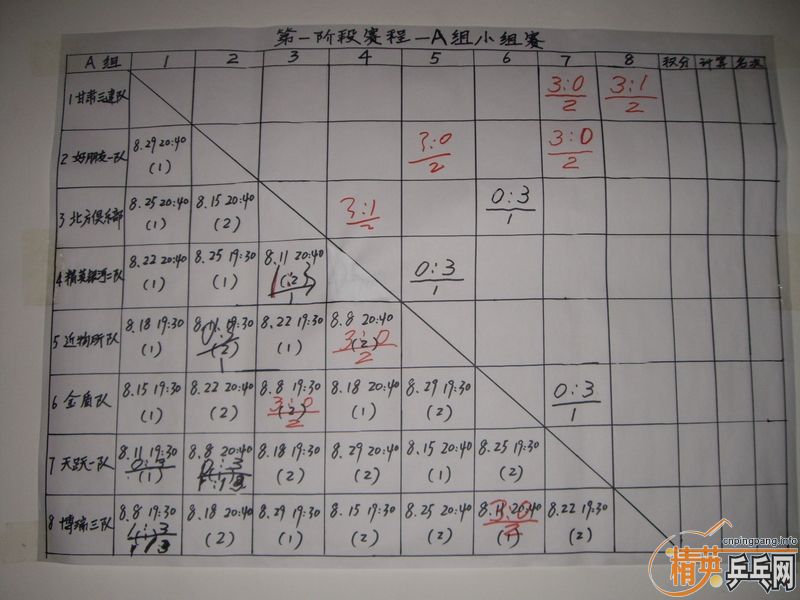 第一阶段赛程—A组小组赛
A组 1 2 3 4 5 6 7 8 积分 计算 名次
1 甘肃三建队 3:0/2 3:1/2
2 好朋友一队 8.29 20:40 (1) 3:0/2 3:0/2
3 北方俱乐部 8.25 20:40 (1) 8.15 20:40 (2) 3:1/2 0:3/1
4 精英银河二队 8.22 20:40 (1) 8.25 19:30 (1) 8.11 20:40 0:3/1
5 近物所队 8.18 19:30 (1) 19:30 (2) 8.22 19:30 (1) 8.8 20:40 (2) 3:0/2
6 金盾队 8.15 19:30 (1) 8.22 20:40 (2) 8.8 19:30 (2) 3:0/2 8.18 20:40 (1) 8.29 19:30 (2) 0:3/1
7 天跃一队 8.11 19:30 (1) 0:3 8.8 20:40 0:3 8.18 19:30 (2) 8.29 20:40 (2) 8.15 20:40 (1) 8.25 19:30 (2)
8 博瑞三队 8.8 19:30 8.18 20:40 (2) 8.29 19:30 (1) 8.15 19:30 (2) 8.25 20:40 (2) 8.11 20:40 (1) 3:0/2 8.22 19:30 (2)
cnpingpang.info
精英乒乓网